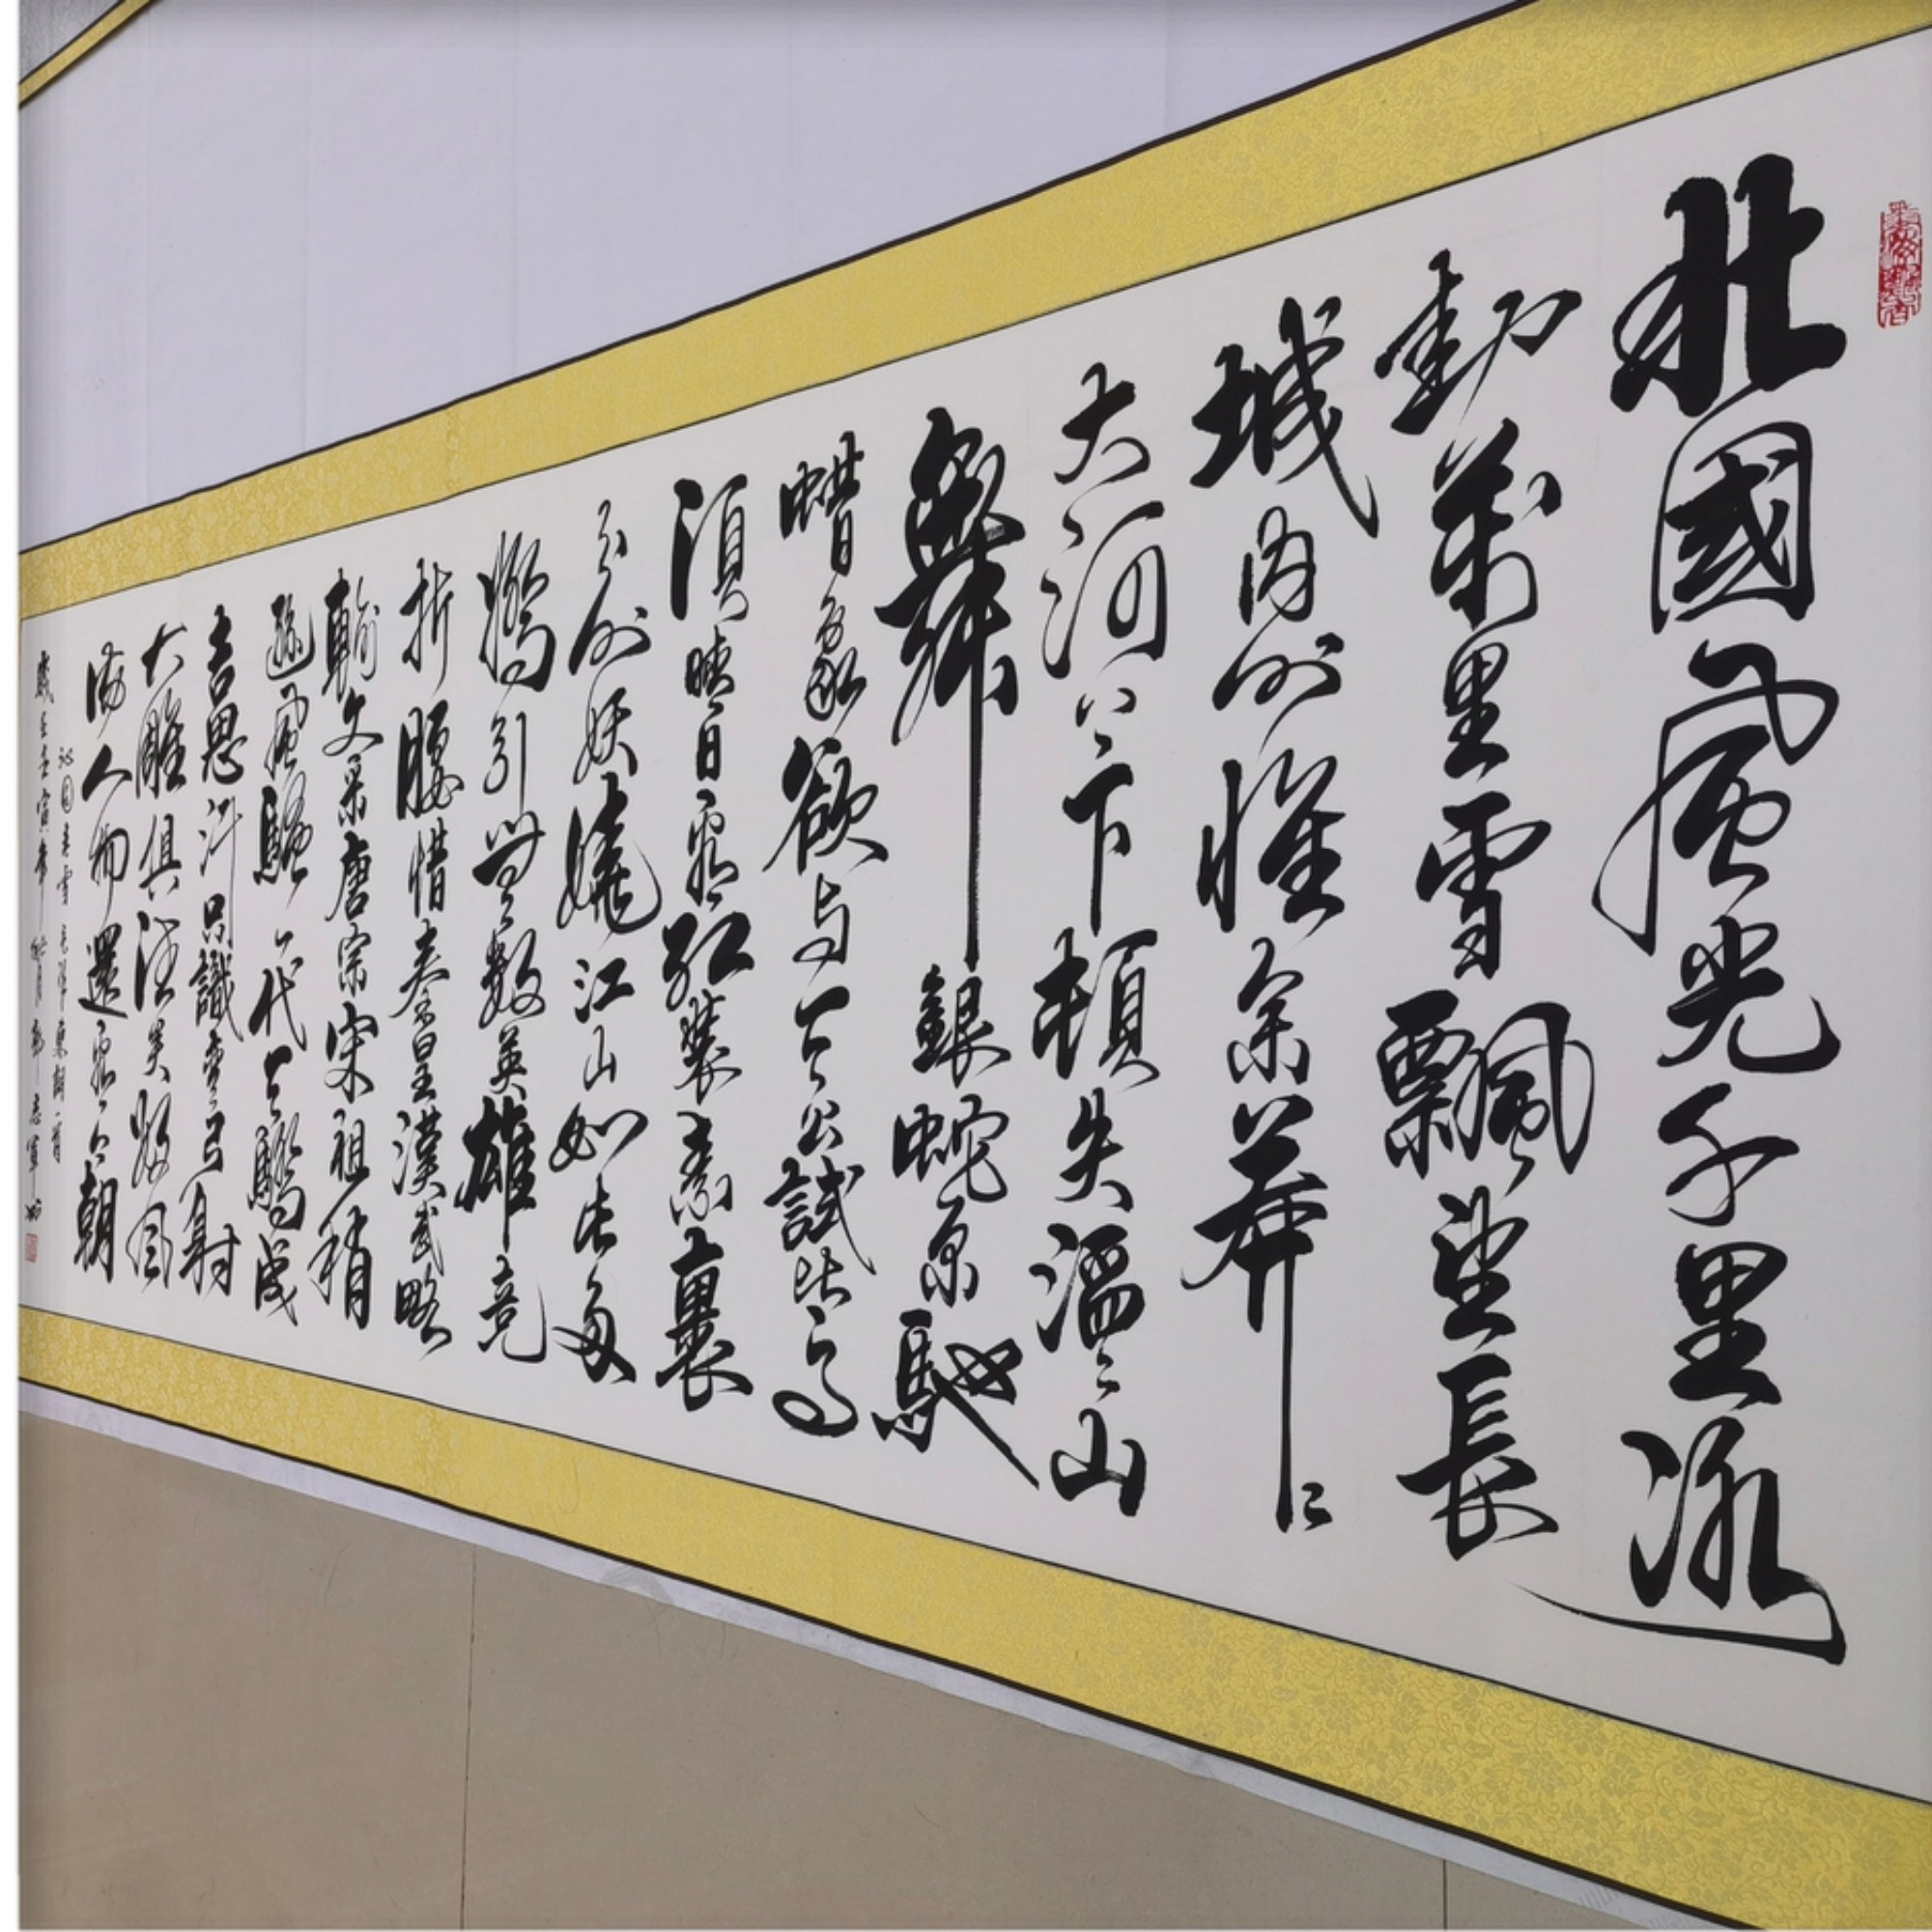 北國風光千里冰
封萬里雪飄望長
城内外惟余莽〻
大河上下頓失滔〻山
舞銀蛇原馳
蜡象欲与天公試比高
須晴日看紅裝素裹
分外妖嬈江山如此多
嬌引無數英雄竞
折腰惜秦皇漢武略
輸文采唐宗宋祖稍
遜風騷一代天驕成
吉思汗只識彎弓射
大雕俱往矣數風
流人物還看今朝
沁园春雪毛澤東詞一首
歲在壬寅年秋月郭志軍书